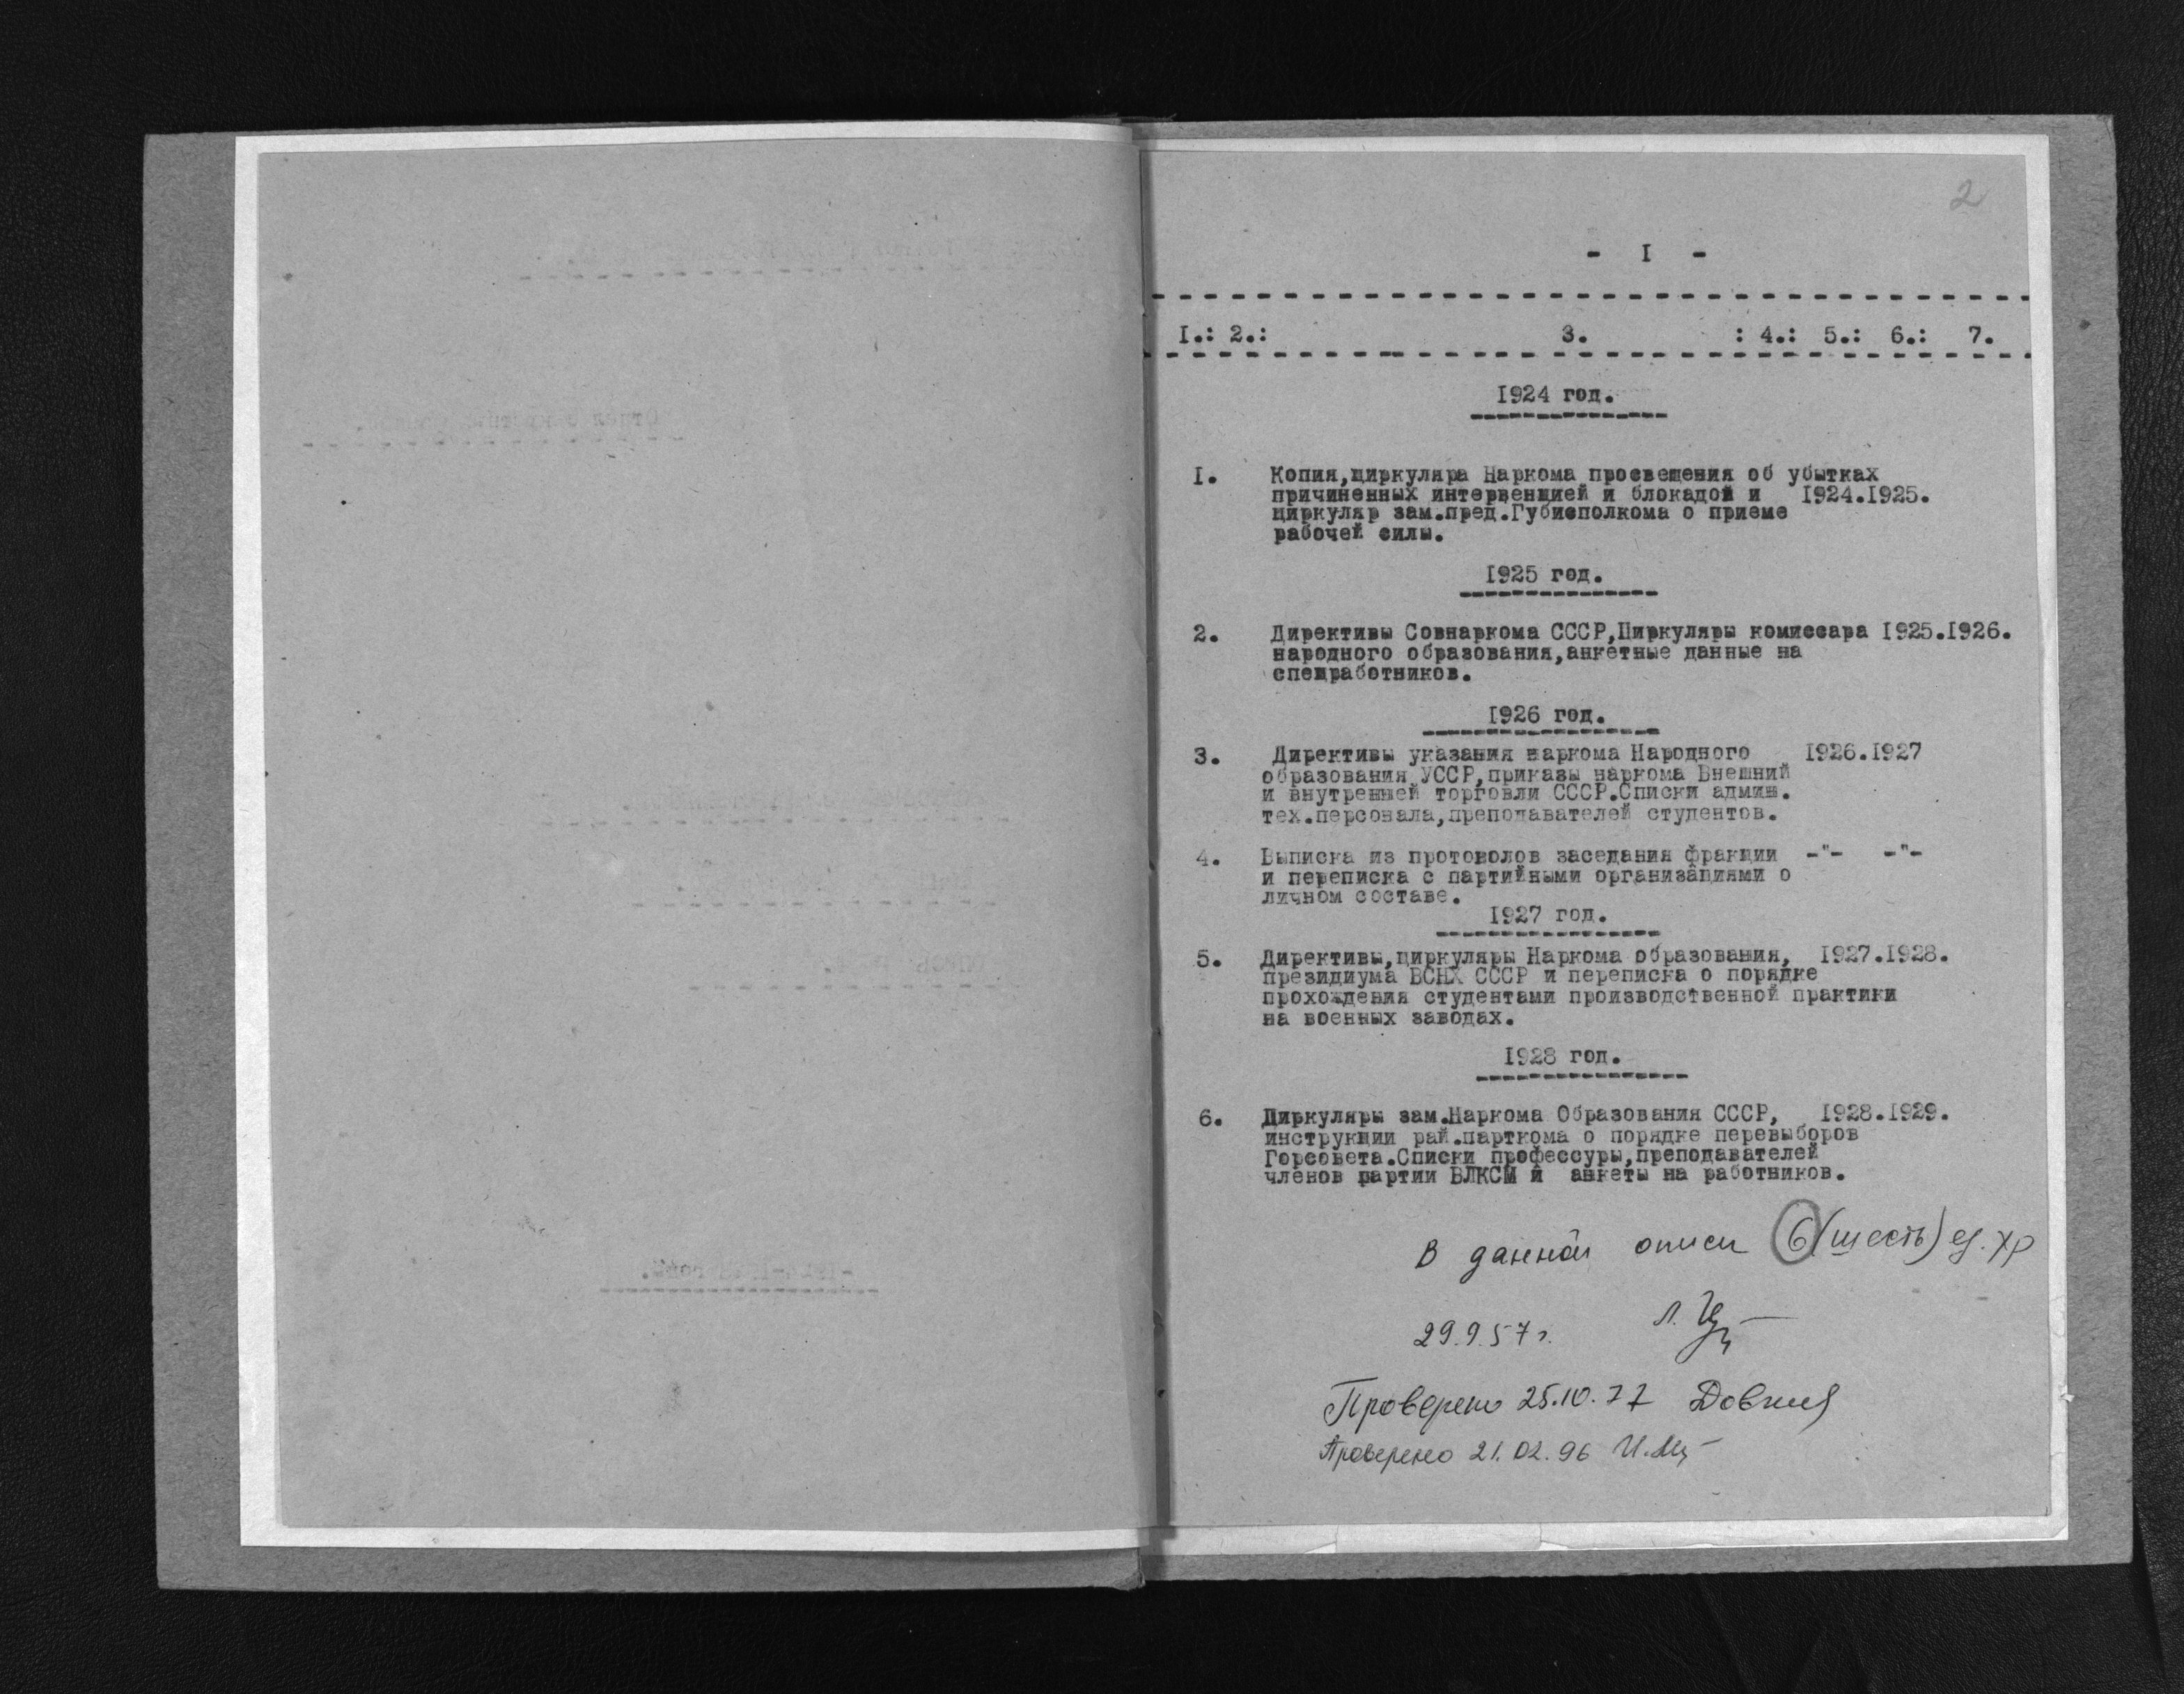 2
- I -
I.: 2.: 3. : 4.: 5.: 6.: 7.
I924 год.
I. Копия,циркуляра Наркома просвещения об убытках
причиненных интервенцией и блокадой и I924.I925.
циркуляр зам.пред.Губисполкома о приеме
рабочей силы.
I925 год.
2. Директивы Совнаркома СССР,Циркуляры комиссара I925.I926.
народного образования,анкетные данные на
спецработников.
I926 год.
3. Директивы указания наркома Народного I926.I927
образования УССР,приказы наркома Внешний
и внутренней торговли СССР.Списки админ.
тех.персонала,преподавателей студентов.
4. Выписка из протоколов заседания фракции -"- -"-
и переписка с партийными организациями о
личном составе.
I927 год.
5. Директивы,циркуляры Наркома образования, I927.I928.
президиума ВСНХ СССР и переписка о порядке
прохождения студентами производственной практики
на военных заводах.
I928 год.
6. Циркуляры зам.Наркома Образования СССР, I928.I929.
инструкции рай.парткома о порядке перевыборов
Горсовета.Списки профессуры,преподавателей
членов партии ВЛКСМ и анкеты на работников.
В данной описи 6 (шесть) ед. хр
29.9.57 г.
Проверено 25.10.77
Проверено 21.02.96